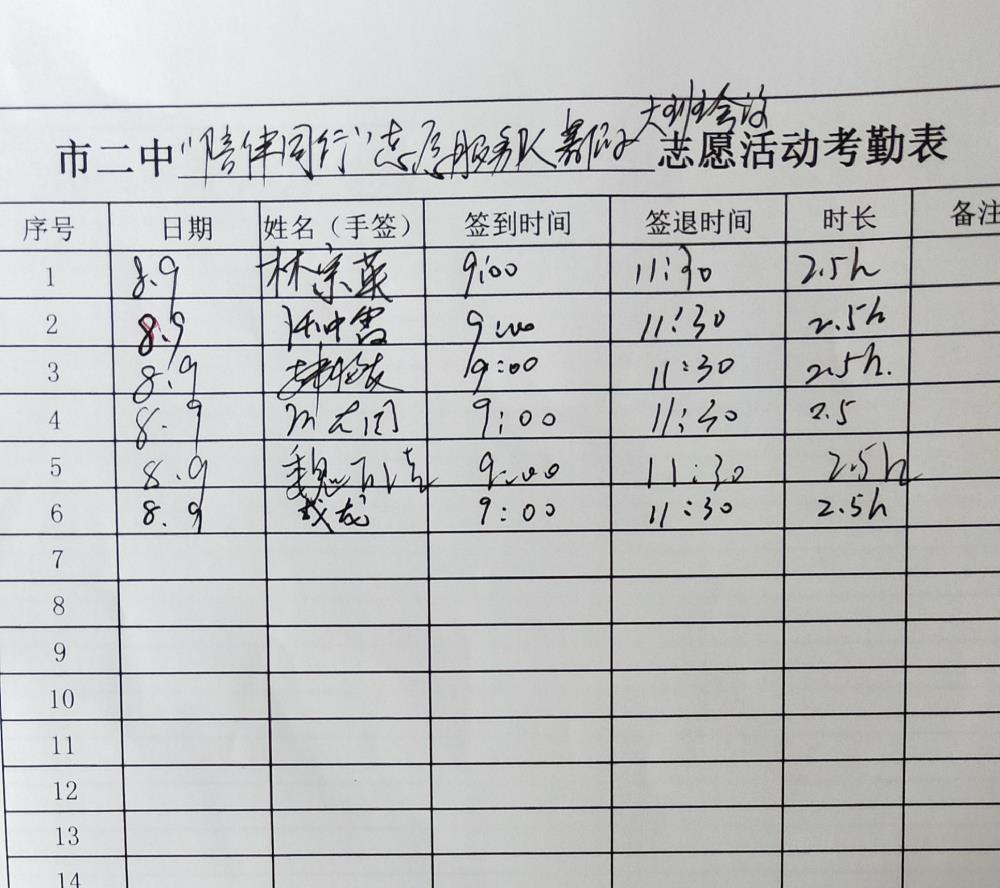 大班会议
市二中"陪伴同行"志愿服务队暑假 志愿活动考勤表
序号 日期 姓名（手签） 签到时间 签退时间 时长 备注
1 8.9 林宗英 9:00 11:30 2.5h
2 8.9 9:00 11:30 2.5h
3 8.9 9:00 11:30 2.5h.
4 8.9 9:00 11:30 2.5
5 8.9 魏 9:00 11:30 2.5h
6 8.9 戎龙 9:00 11:30 2.5h
7
8
9
10
11
12
13
14